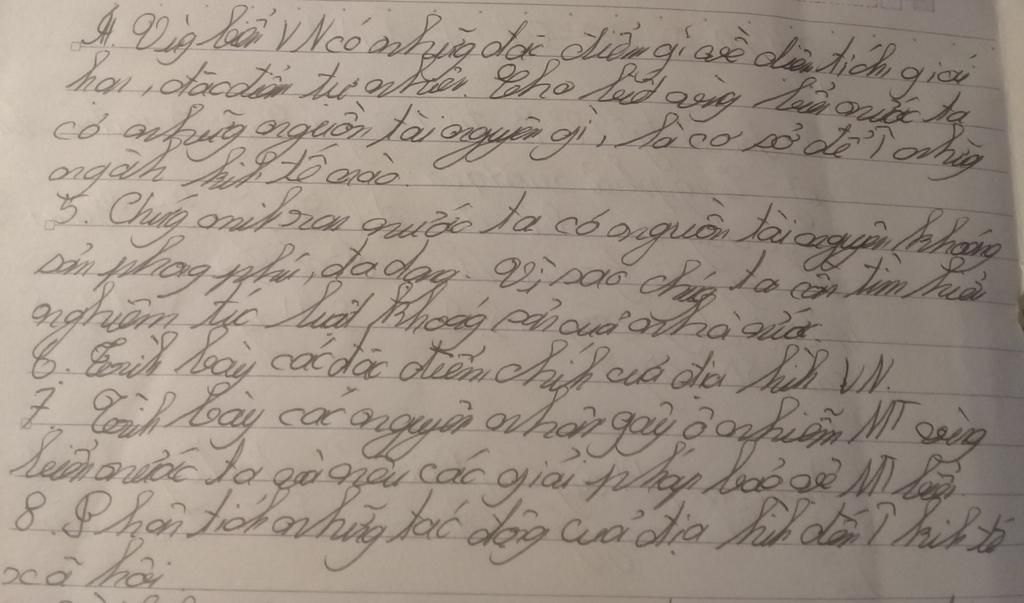 4. Vùg biển VN có những đặc điểm gì về diện tích, giới
hạn, đặc điểm tự nhiên. Cho biết vùng biển nước ta
có những nguồn tài nguyên gì, là cơ sở để những
ngành kinh tế nào.
5. Chứng minh rằng nước ta có nguồn tài nguyên khoáng
sản phong phú, đa dạng. Vì sao chúng ta cần tìm hiểu
nghiêm túc luật khoáng sản của nhà nước.
6. Trình bày các đặc điểm chính của địa hình VN.
7. Trình bày các nguyên nhân gây ô nhiễm MT vùng
biển nước ta và nêu các giải pháp bảo vệ MT biển.
8. Phân tích những tác động của địa hình đến kinh tế
xã hội.